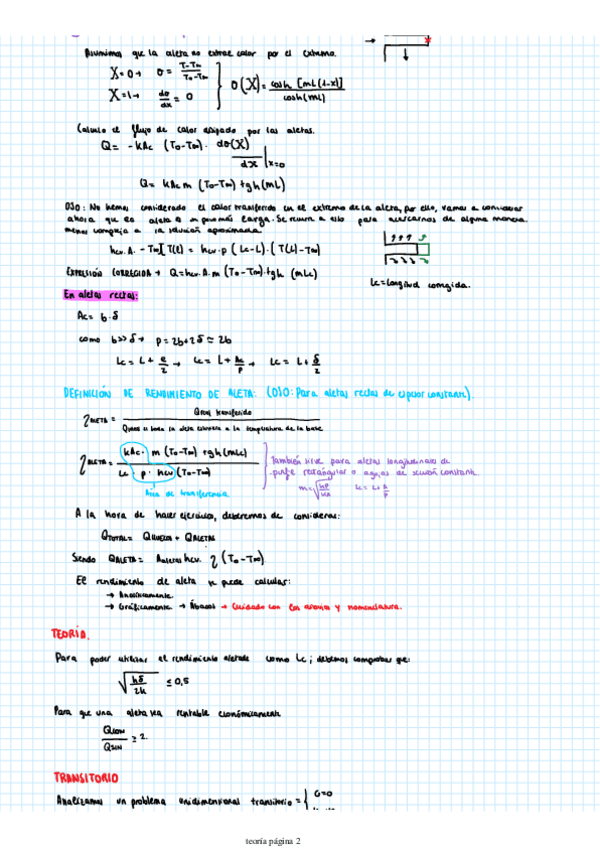 Asumimos que la aleta no extrae calor por el extremo.
X=0 → θ = T-T∞ / T₀-T∞
X=L → dθ/dx = 0
θ(X) = cosh [mL(1-x)] / cosh(mL)
Calculo el flujo de calor disipado por las aletas.
Q = -kAc (T₀-T∞) · dθ(X)/dx |x=0
Q = kAc m (T₀-T∞) tgh(mL)
OJO: No hemos considerado el calor transferido en el extremo de la aleta, por ello, vamos a considerar
ahora que la aleta es un poco más larga. Se recurre a ello para acercarnos de alguna manera
menos compleja a la solución aproximada.
hcv. A. - T∞[T(L) = hcv.p (Lc-L)·(T(L)-T∞)
EXPRESIÓN CORREGIDA → Q = hcv.A.m (T₀-T∞).tgh (mLc)
Lc=longitud corregida.
En aletas rectas:
Ac = b·δ
como b>>δ → p = 2b+2δ ≃ 2b
Lc = L + e/2 → Lc = L + A/p → Lc = L + δ/2
DEFINICIÓN DE RENDIMIENTO DE ALETA: (OJO: Para aletas rectas de espesor constante).
η ALETA = Qreal transferido / Q si toda la aleta estuviera a la temperatura de la base
η ALETA = kAc · m (T₀-T∞) tgh(mLc) / Lc · p · hcv (T₀-T∞)
También sirve para aletas longitudinales de
perfil rectangular o agujas de sección constante.
m = √hp/kA Lc = L+A/p
Área de transferencia
A la hora de hacer ejercicios, deberemos de considerar:
QTOTAL = QHUECOS + QALETAS
Siendo QALETA = Aaletas hcv. η (T₀-T∞)
El rendimiento de aleta se puede calcular:
→ Analíticamente.
→ Gráficamente → Ábacos → Cuidado con los apuntes y nomenclatura.
TEORÍA.
Para poder utilizar el rendimiento aletado como Lc; debemos comprobar que:
√hδ/2k ≤ 0,5
Para que una aleta sea rentable económicamente
QCON / QSIN ≥ 2.
TRANSITORIO
Analizamos un problema unidimensional transitorio = { G=0
teoría página 2